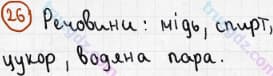 26 Речовини: мідь, спирт,
цукор, водяна пара.